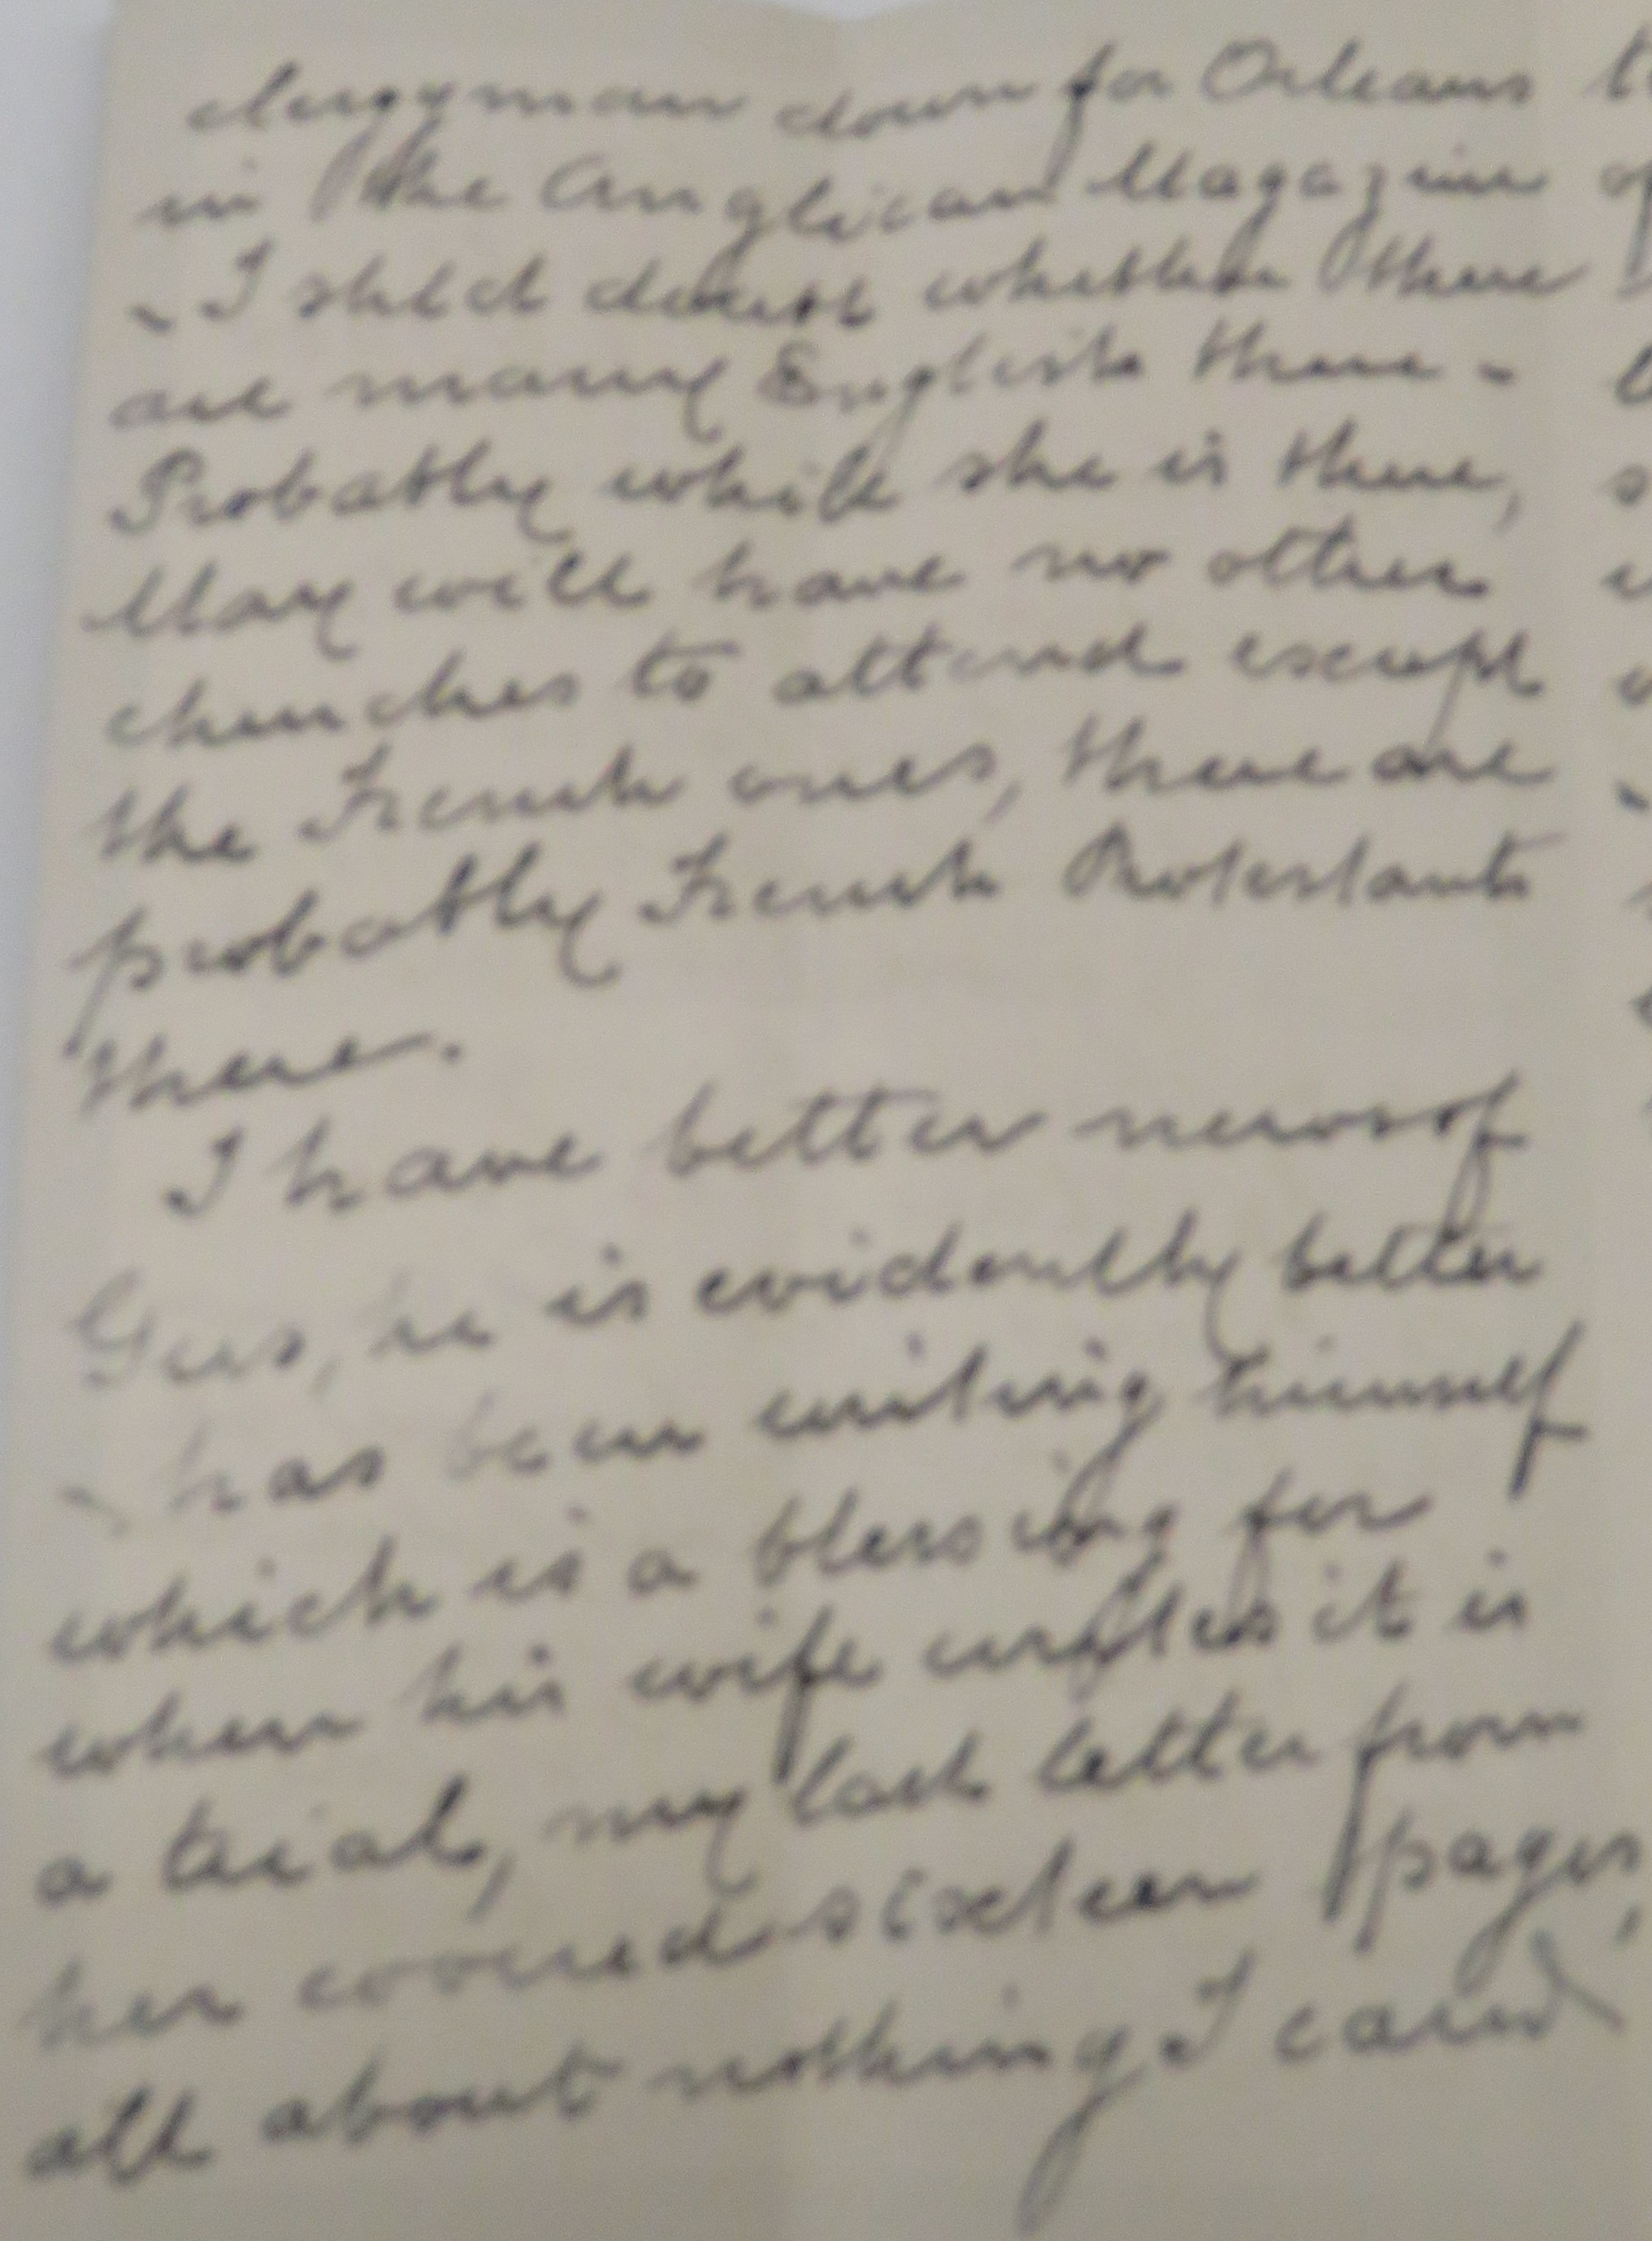 clergyman down for Orleans
in the Anglican Magazine
- I shld doubt whether there
are many English there -
Probably while she is there,
May will have no other
churches to attend except
the French ones, there are
probably French Protestants
there.
I have better news of
Gus, he is evidently better
- has been writing himself
which is a blessing for
when his wife writes it is
a trial, my last letter from
her covered sixteen pages,
all about nothing I cared